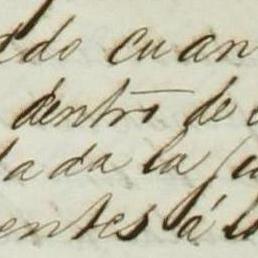 ido cuan
dentro de
dada la
entes á l